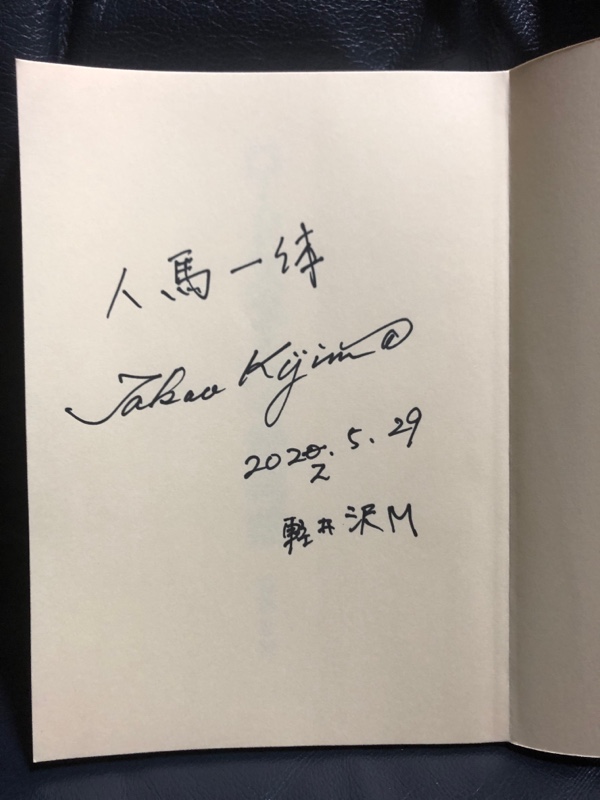 人馬一体
Takao Kijima
2020.5.29
2
軽井沢M